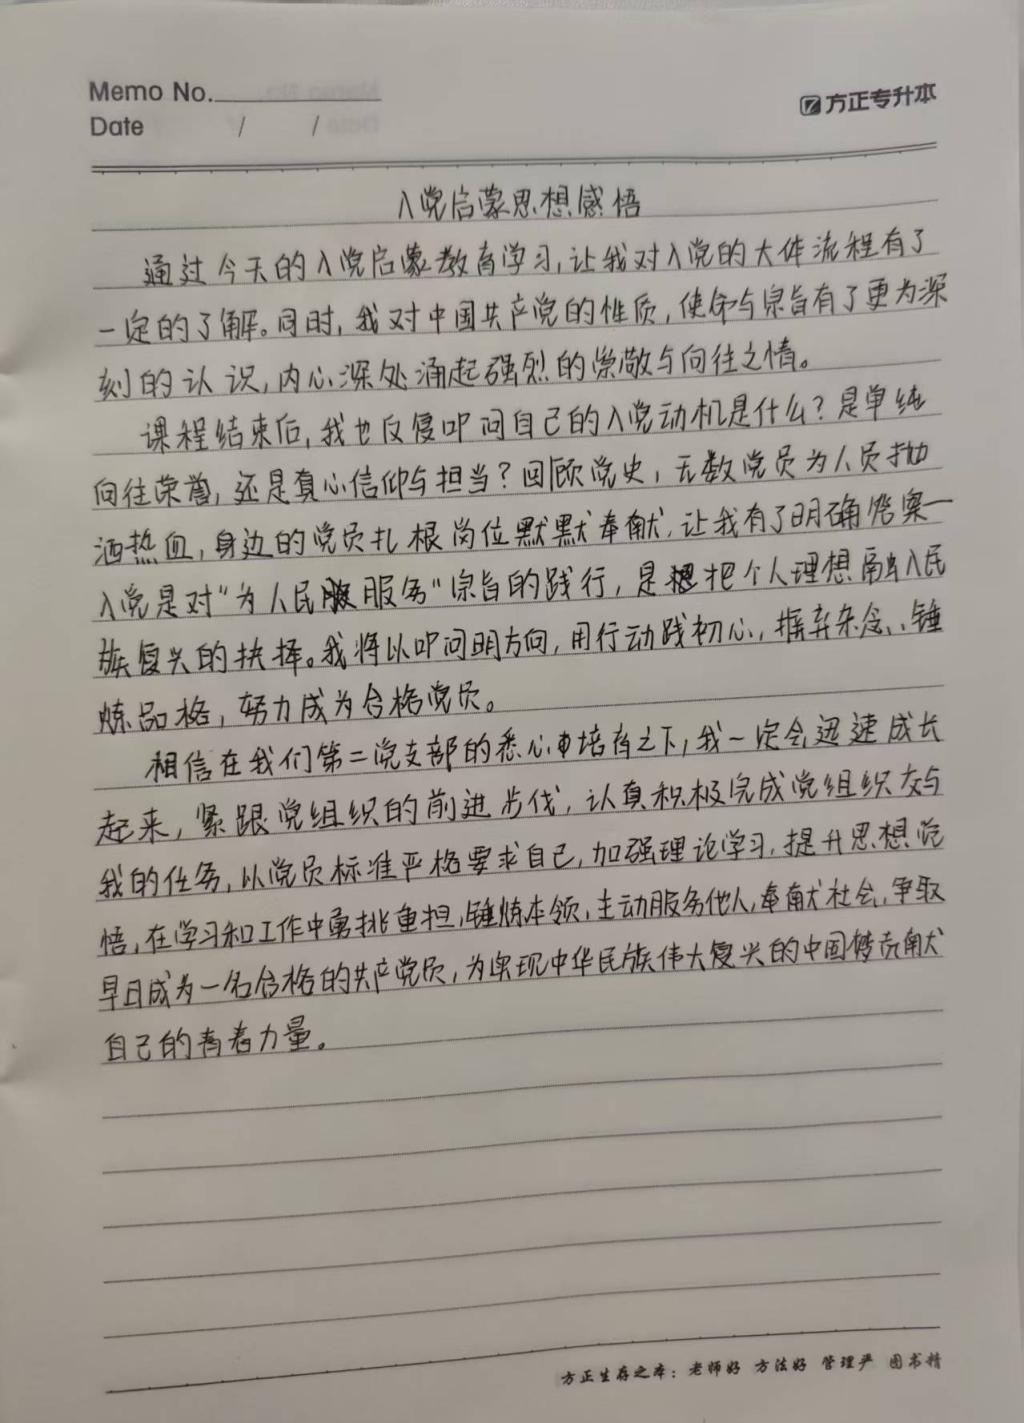 Memo No.
方正专升本
Date / /
入党启蒙思想感悟
通过今天的入党启蒙教育学习,让我对入党的大体流程有了
一定的了解。同时,我对中国共产党的性质,使命与宗旨有了更为深
刻的认识,内心深处涌起强烈的崇敬与向往之情。
课程结束后,我也反复叩问自己的入党动机是什么?是单纯
向往荣誉,还是真心信仰与担当?回顾党史,无数党员为人民抛
洒热血,身边的党员扎根岗位默默奉献,让我有了明确答案一
入党是对“为人民服务”宗旨的践行,是把个人理想融入民
族复兴的抉择。我将以叩问明方向,用行动践初心,摒弃杂念、锤
炼品格,努力成为合格党员。
相信在我们第二党支部的悉心培育之下,我一定会迅速成长
起来,紧跟党组织的前进步伐,认真积极完成党组织交与
我的任务,以党员标准严格要求自己,加强理论学习,提升思想觉
悟,在学习和工作中勇挑重担,锤炼本领,主动服务他人,奉献社会,争取
早日成为一名合格的共产党员,为实现中华民族伟大复兴的中国梦贡献
自己的青春力量。
方正生存之本:老师好 方法好 管理严 图书精